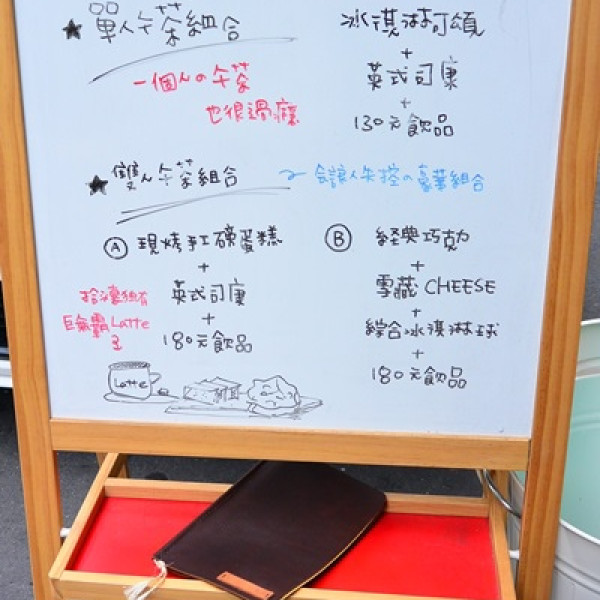 ★單人午茶組合
一個人の午茶
也很過癮
冰淇淋可頌
+
英式司康
+
130元飲品
★雙人午茶組合
~會讓人失控の豪華組合
Ⓐ 現烤手工礦蛋糕
+
英式司康
+
180元飲品
巨無霸Latte
Ⓑ 経典巧克力
+
雪藏CHEESE
+
綜合冰淇淋球
+
180元飲品
Latte